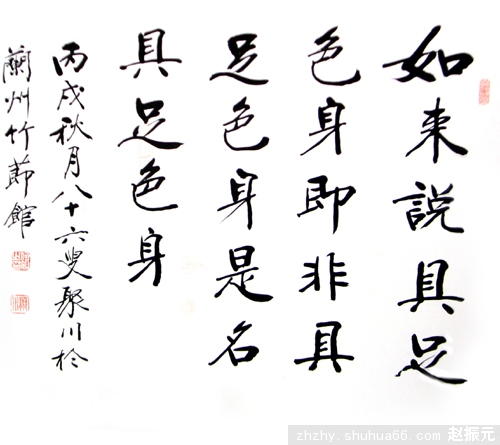 如来說具足
色身即非具
足色身是名
具足色身
丙戌秋月八十六叟聚川於
蘭州竹節館
zhzhy.shuhua66.com 赵振元